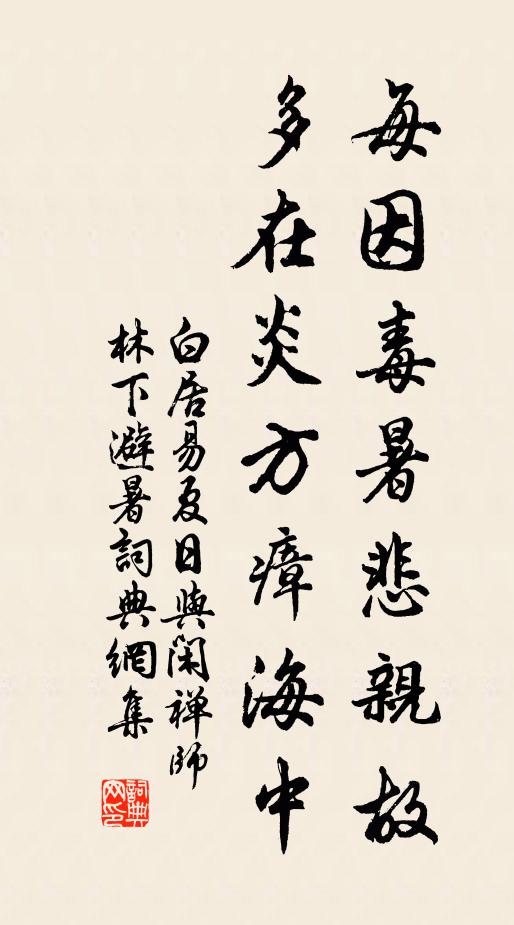 每因毒暑悲親故
多在炎方瘴海中
白居易夏日與閑禅師
林下避暑詞典網集
詞典网印